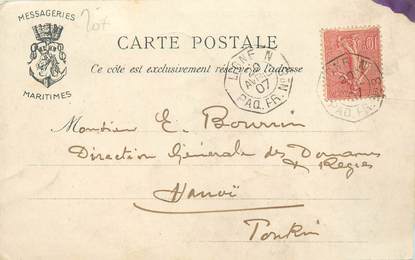 MESSAGERIES
MARITIMES
CARTE POSTALE
Ce côté est exclusivement réservé à l'adresse
LIGNE N
22
07
PAQ. FR. No
10
LIGNE N
PAQ. FR. No
Monsieur E. Bourrin
Direction Générale des Douanes
& Régies
Hanoï
Tonkin